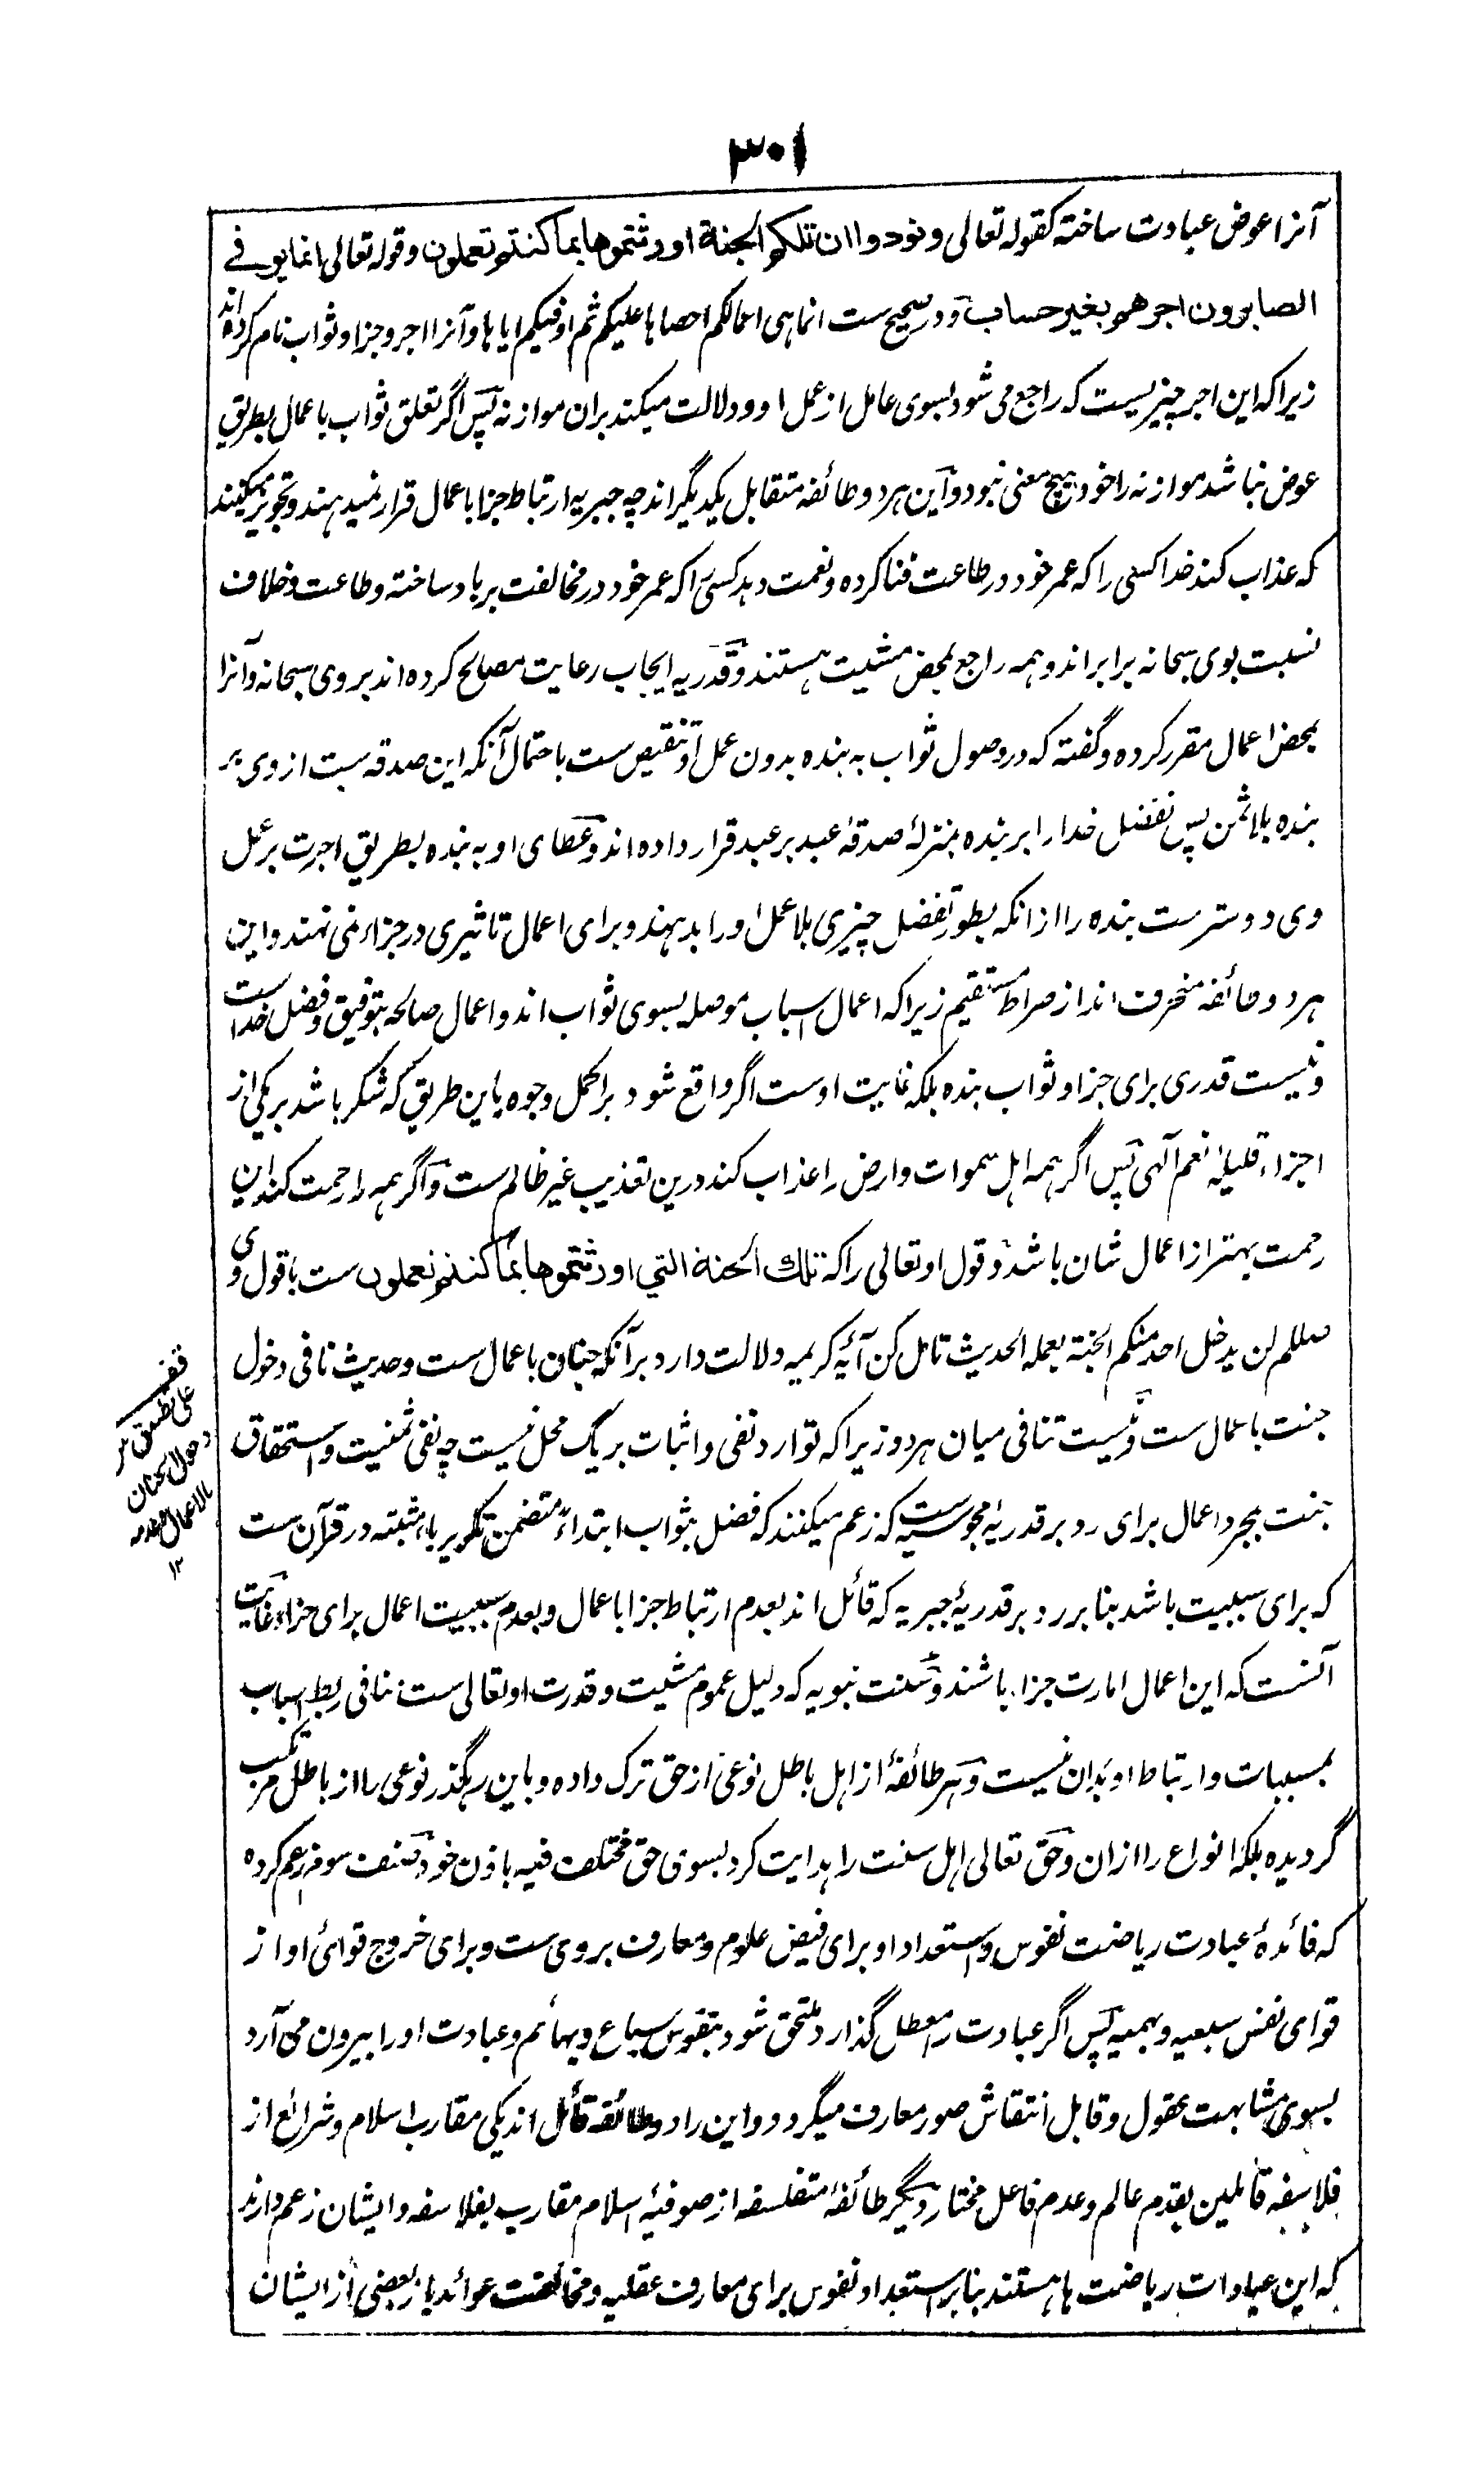 ۳۰۱
آنرا عوض عبادت ساخته کقوله تعالی ونودوا ان تلکم الجنة اورثتموها بما کنتم تعملون وقوله تعالی انما یوفی
الصابرون اجرهم بغیر حساب ودر صحیح ست انما هی اعمالکم احصاها علیکم ثم اوفیکم ایاها وآنرا اجر وجزا وثواب نام کرده اند
زیراکه این اجر چیزیست که راجع می شود بسوی عامل از عمل او ودلالت میکند بران موازنه پس اگر تعلق ثواب باعمال بطریق
عوض نباشد موازنه را خود هیچ معنی نبود واین هر دو طائفه متقابل یکدیگر اند چه جبریه ارتباط جزا باعمال قرار نمیدهند وتجویز میکنند
که عذاب کند خدا کسی را که عمر خود در طاعت فنا کرده ونعمت دهد کسی را که عمر خود در مخالفت برباد ساخته وطاعت وخلاف
نسبت بوی سبحانه برابر اند وهمه راجع بمحض مشیت هستند وقدریه ایجاب رعایت مصالح کرده اند بر وی سبحانه وآنرا
بمحض اعمال مقرر کرده وگفته که در وصول ثواب به بنده بدون عمل او تنقیص ست باحتمال آنکه این صدقه ست از وی بر
بنده بلا ثمن پس تفضل خدا را بر بنده بمنزلۀ صدقۀ عبد بر عبد قرار داده اند وعطای او به بنده بطریق اجرت بر عمل
وی دوستر ست بنده را از انکه بطور تفضل چیزی بلا عمل او را بدهند وبرای اعمال تاثیری در جزاء نمی نهند واین
هر دو طائفه منحرف اند از صراط مستقیم زیراکه اعمال اسباب موصله بسوی ثواب اند واعمال صالحه بتوفیق وفضل خداست
ونیست قدری برای جزا وثواب بنده بلکه غایت اوست اگر واقع شود بر اکمل وجوه باین طریق که شکر باشد بر یکی از
اجزاء قلیلۀ نعم آلهی پس اگر همه اهل سموات وارض را عذاب کند درین تعذیب غیر ظالم ست واگر همه را رحمت کند این
رحمت بهتر از اعمال شان باشد وقول اوتعالی را که تلك الجنة التي اورثتموها بما کنتم تعملون ست باقول وی
صللم لن یدخل احد منکم الجنة بعمله الحدیث تامل کن آئیه کریمه دلالت دارد برآنکه جنان باعمال ست وحدیث نافی دخول
جنت باعمال ست ونیست تنافی میان هر دو زیراکه توارد نفی واثبات بر یک محل نیست چه نفی ثمنیت واستحقاق
جنت بمجرد اعمال برای رد بر قدریۀ مجوسیه ست که زعم میکنند که فضل بثواب ابتداءً متضمن تکدیر باء مثبته در قرآن ست
که برای سببیت باشد بنابر رد بر قدریۀ جبریه که قائل اند بعدم ارتباط جزا باعمال وبعدم سببیت اعمال برای جزاء وغایت
آنست که این اعمال امارت جزا باشند وسنت نبویه که دلیل عموم مشیت وقدرت اوتعالی ست نافی ربط اسباب
بمسببات وارتباط او بدان نیست وهر طائفۀ از اهل باطل نوعی از حق ترک داده وباین رهگذر نوعی را از باطل مرتکب
گردیده بلکه انواع را ازان وحق تعالی اهل سنت را هدایت کرد بسوی حق مختلف فیه باذن خود صنف سوم زعم کرده
که فائدۀ عبادت ریاضت نفوس واستعداد او برای فیض علوم ومعارف بر وی ست وبرای خروج قوائ او از
قوای نفس سبعیه وبهمیه پس اگر عبادت را معطل گذارد ملتحق شود بنفوس سباع وبهائم وعبادت او را بیرون می آرد
بسوی مشابهت عقول وقابل انتقاش صور معارف میگردد واین را دو طائفه قائل اند یکی مقارب اسلام وشرائع از
فلاسفه قائلین بقدم عالم وعدم فاعل مختار دیگر طائفۀ متفلسفه از صوفیۀ اسلام مقارب بفلاسفه وایشان زعم دارند
که این عبادات ریاضت ها هستند بنابر استعداد نفوس برای معارف عقلیه ومخالفت عوائد باز بعضی از ایشان
قف
علی تطبیق
دخول الجنان
بالاعمال وعدمه
۱۲